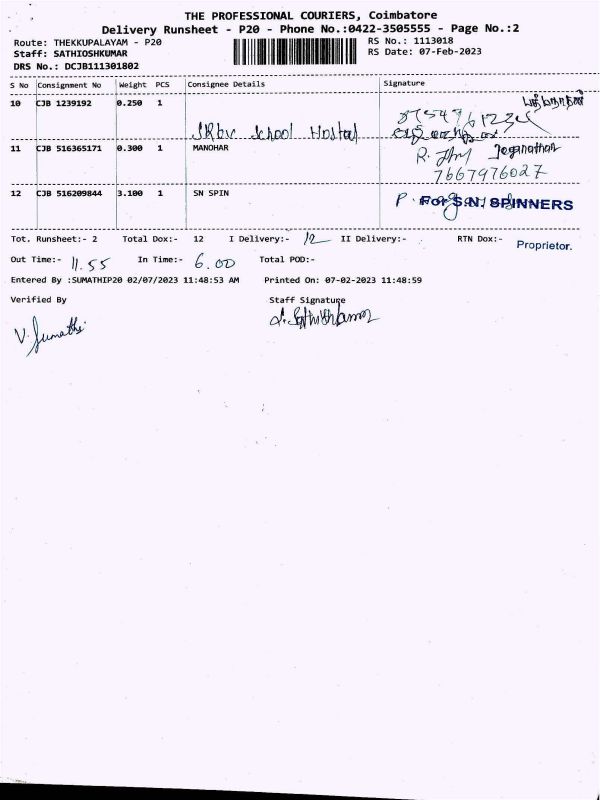 THE PROFESSIONAL COURIERS, Coimbatore
Delivery Runsheet - P20 - Phone No.:0422-3505555 - Page No.:2
Route: THEKKUPALAYAM - P20 RS No.: 1113018
Staff: SATHIOSHKUMAR RS Date: 07-Feb-2023
DRS No.: DCJB111301802
S No Consignment No Weight PCS Consignee Details Signature
10 CJB 1239192 0.250 1
School Hostel
11 CJB 516365171 0.300 1 MANOHAR R. Jeganathan
7667976027
12 CJB 516209844 3.100 1 SN SPIN P. For S.N. SPINNERS
Tot. Runsheet:- 2 Total Dox:- 12 I Delivery:- 12 II Delivery:- RTN Dox:- Proprietor.
Out Time:- 11.55 In Time:- 6.00 Total POD:-
Entered By :SUMATHIP20 02/07/2023 11:48:53 AM Printed On: 07-02-2023 11:48:59
Verified By Staff Signature
V. Sumathi